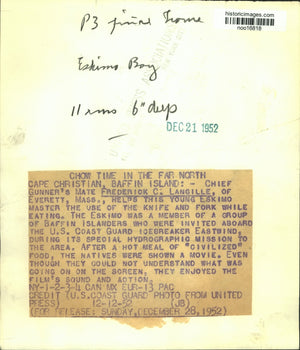 historicimages.com
noo16818
P3 final home
Eskimo Boy
11 ems 6" deep
DEC 21 1952
CHOW TIME IN THE FAR NORTH
CAPE CHRISTIAN, BAFFIN ISLAND: - CHIEF
GUNNER'S MATE FREDERICK C. LANGILLE, OF
EVERETT, MASS., HELPS THIS YOUNG ESKIMO
MASTER THE USE OF THE KNIFE AND FORK WHILE
EATING. THE ESKIMO WAS A MEMBER OF A GROUP
OF BAFFIN ISLANDERS WHO WERE INVITED ABOARD
THE U.S. COAST GUARD ICEBREAKER EASTWIND,
DURING ITS SPECIAL HYDROGRAPHIC MISSION TO
THE AREA. AFTER A HOT MEAL OF "CIVILIZED"
FOOD, THE NATIVES WERE SHOWN A MOVIE. EVEN
THOUGH THEY COULD NOT UNDERSTAND WHAT WAS
GOING ON ON THE SCREEN, THEY ENJOYED THE
FILM'S SOUND AND ACTION.
NY-1-2-3-4 CAN MX EUR-13 PAC
CREDIT (U.S. COAST GUARD PHOTO FROM UNITED
PRESS) 12-12-52 (JB)
(FOR RELEASE: SUNDAY, DECEMBER 28, 1952)